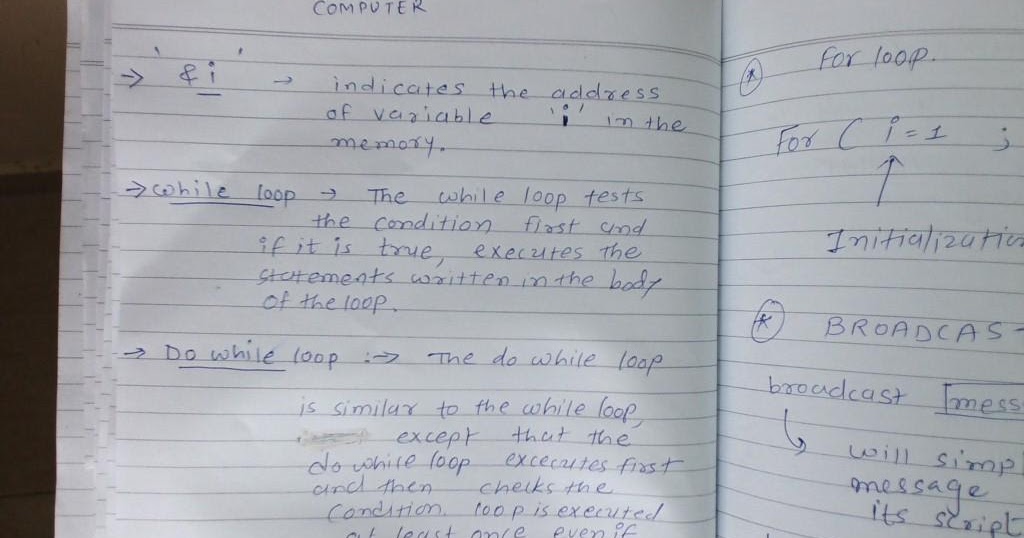 COMPUTER
→ '&i' → indicates the address
of variable 'i' in the
memory.
→ while loop → The while loop tests
the condition first and
if it is true, executes the
statements written in the body
of the loop.
→ Do while loop :→ The do while loop
is similar to the while loop,
except that the
do while loop excecutes first
and then checks the
condition. loop is executed
at least once even if
* For loop.
For ( i = 1 ;
↑
Initialization
* BROADCAS
broadcast mess
↳ will simp
message
its script